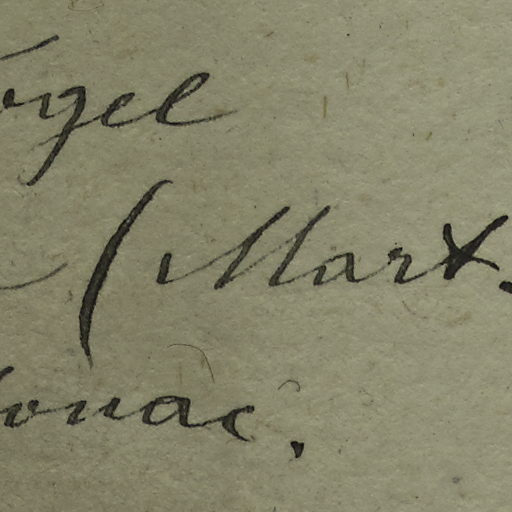 ogel
(Mart.
onac.